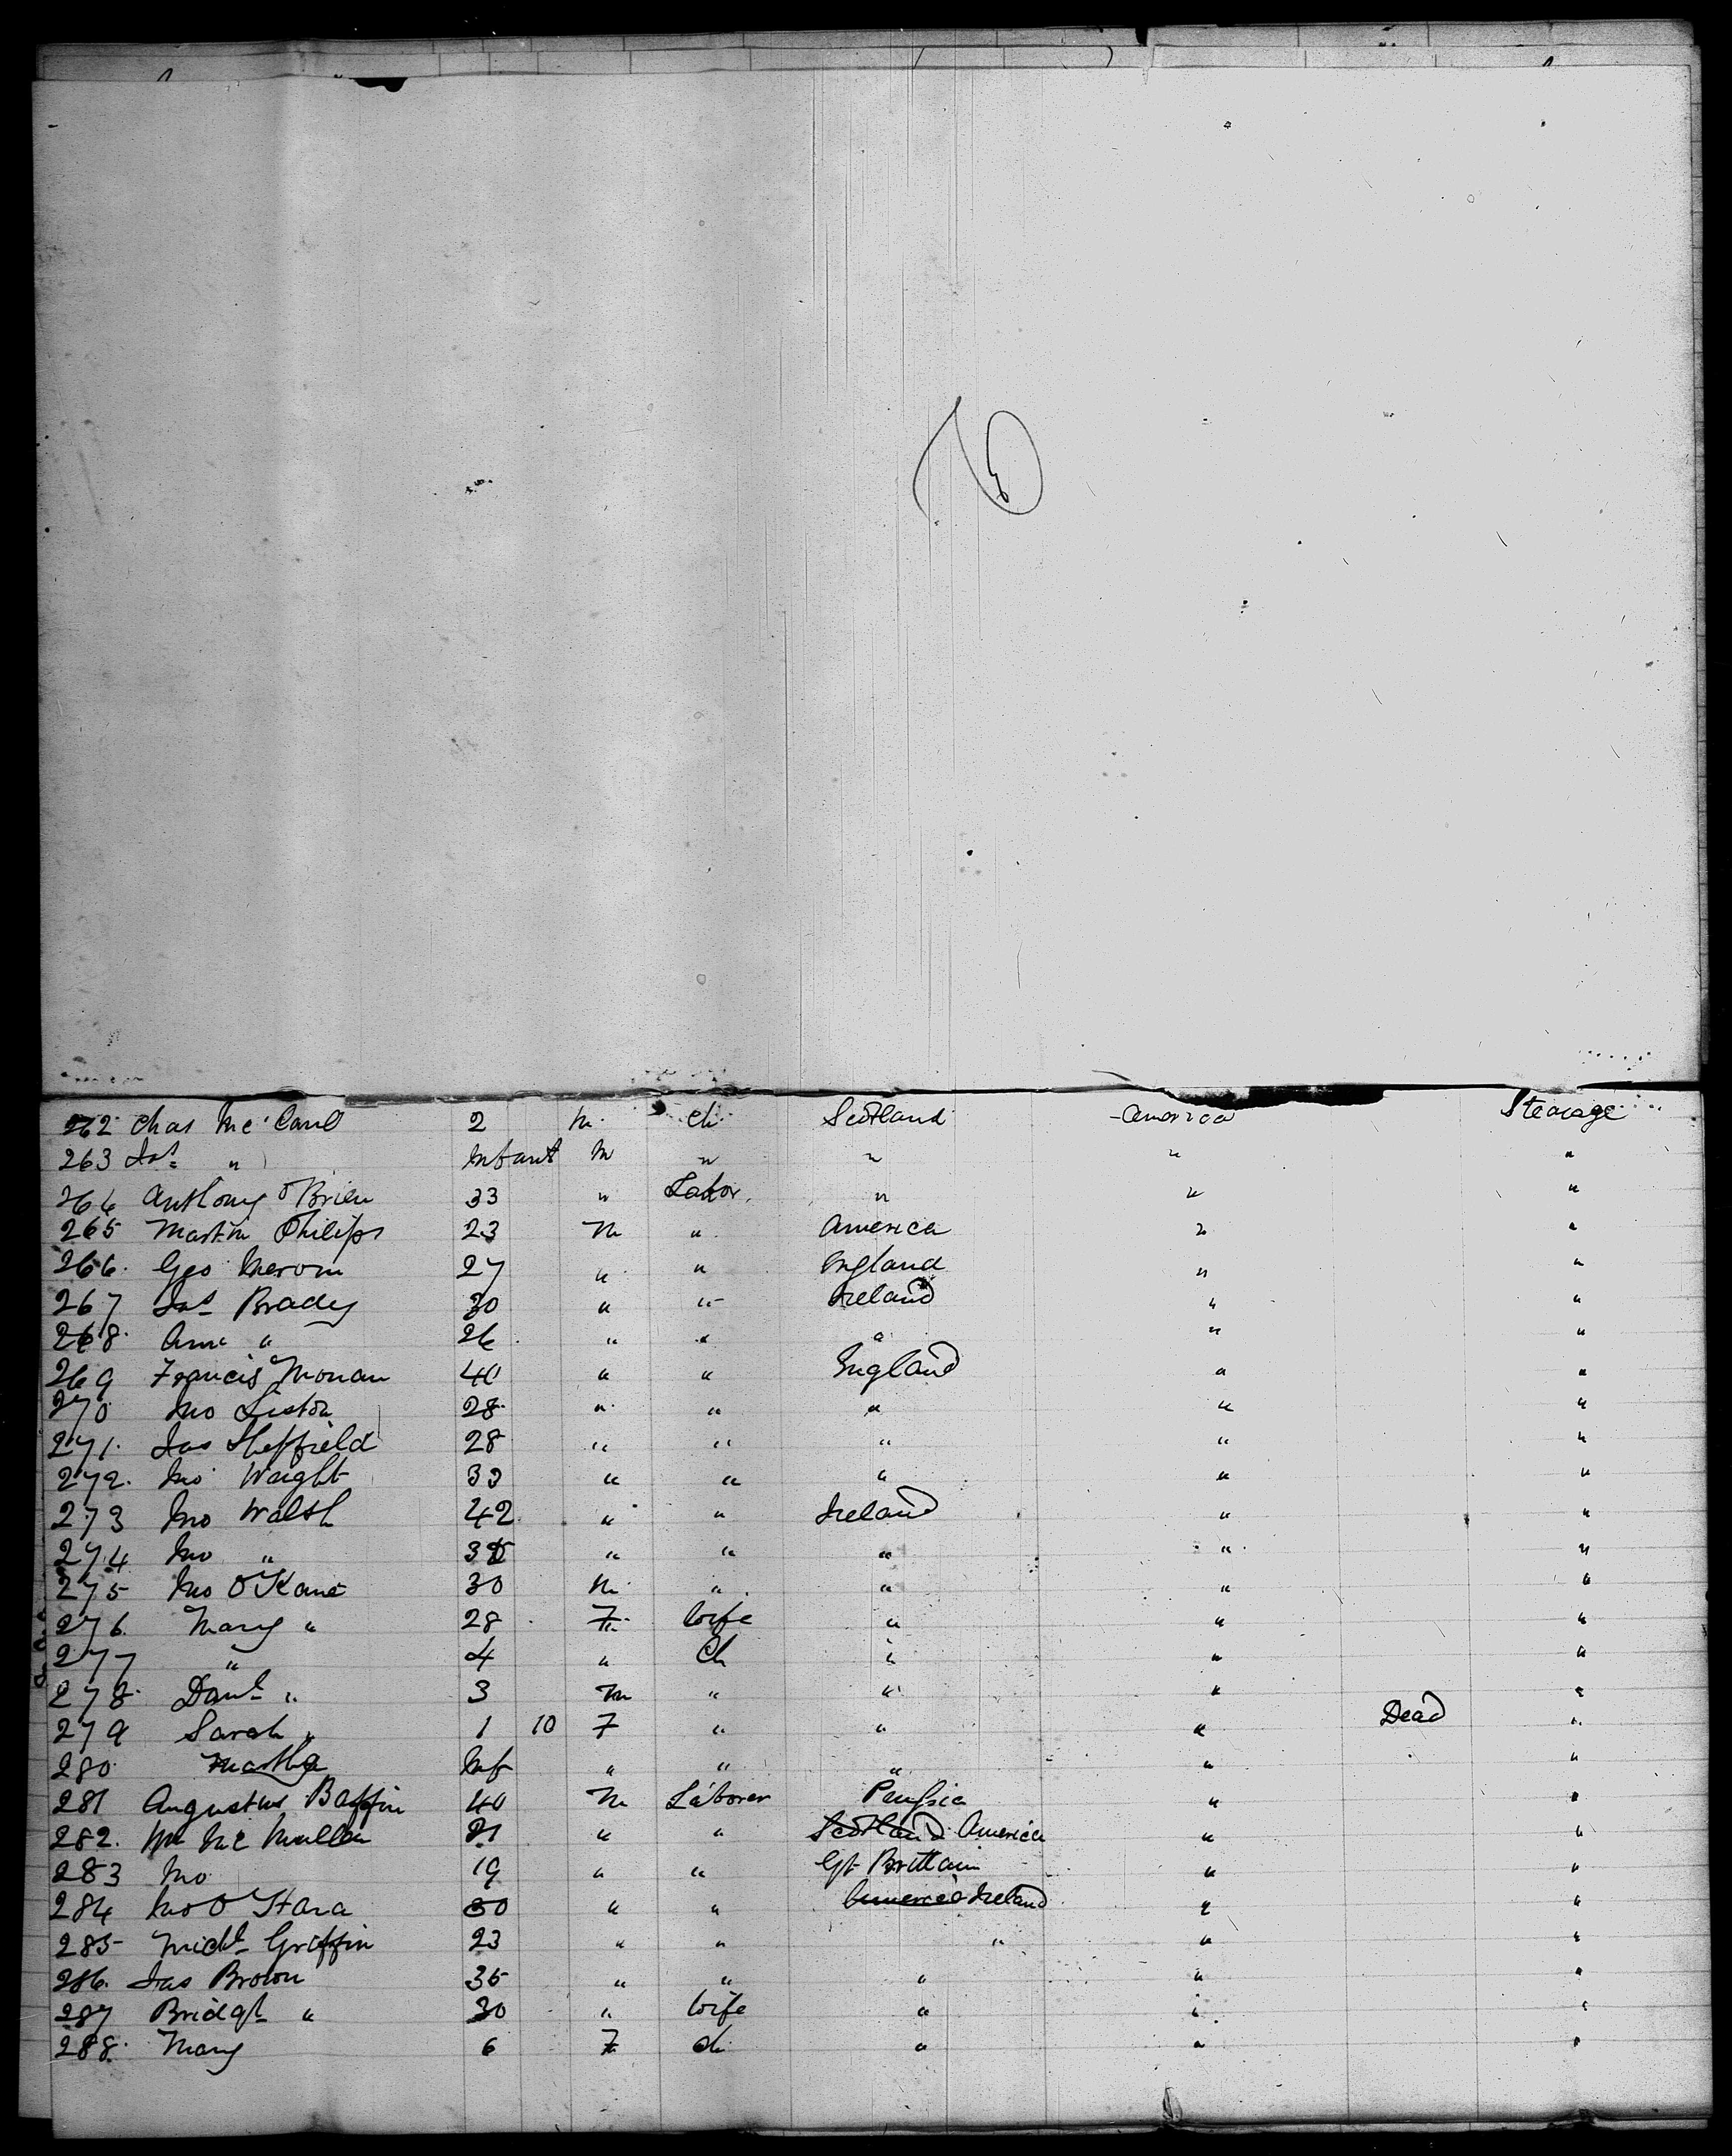 262 Chas Mc Caul 2 M. Ch. Scotland America Stearage
263 Jas " Infant M " " " "
264 Anthony O'Brien 33 " Labor. " " "
265 Martin Philips 23 M " America " "
266. Geo 27 " " England " "
267 Jas Brady 30 " " Ireland " "
268. Ann " 26 " " " " "
269 Francis Monan 40 " " England " "
270 Jno Liston 28 " " " " "
271. Jas Sheffield 28 " " " " "
272. Jno Wright 33 " " " " "
273 Jno Walsh 42 " " Ireland " "
274 Jno " " " " " "
275 Jno O'Kane 30 M " " " "
276. Mary " 28 F. Wife " " "
277 " 4 " Ch " " "
278. Danl " 3 M " " " "
279 Sarah " 1 10 F " " " Dead "
280. Martha Inf " " " " "
281 Augustus Baffin 40 M Laborer Prussia " "
282. Wm Mc Mullen 21 " " Scotland America " "
283 Jno 19 " " Gt Brittain " "
284 Jno O'Hara 30 " " America Ireland " "
285 Michl Griffin 23 " " " " "
286. Jas Brown 35 " " " " "
287 Bridgt " 30 " Wife " " "
288. Mary 6 F ch " " "